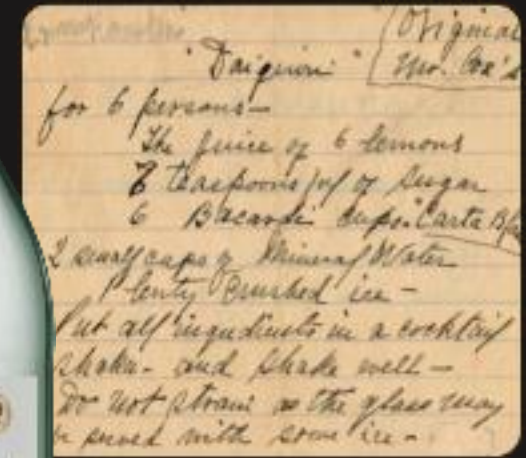 (Original
"Daiquiri" Mr. Cox's
for 6 persons—
The juice of 6 lemons
6 teaspoonsful of sugar
6 Bacardi cups "Carta
2 small cups of Mineral Water
Plenty crushed ice —
Put all ingredients in a cocktail
shaker - and shake well —
Do not strain as the glass may
be served with some ice -